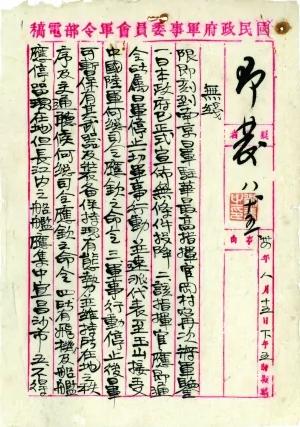 國民政府軍事委員會軍令部電稿
即發
八、十五
卅四年八月十五日下午五時擬稿
無綫
限即刻到南京日軍駐華最高指揮官岡村寧次將軍鑒
一日本政府已正式宣佈無條件投降二該指揮官應即通
令所屬日軍停止一切軍事行動並速派代表至玉山接受
中國陸軍何總司令應欽之命令三軍事行動停止後日軍
可暫保有其武器及裝備保持現有態勢並維持所在地之秩
序及交通聽候何總司令應欽之命令四所有飛機及船艦
應停留現在地但長江內之船艦應集中宜昌沙市五不得